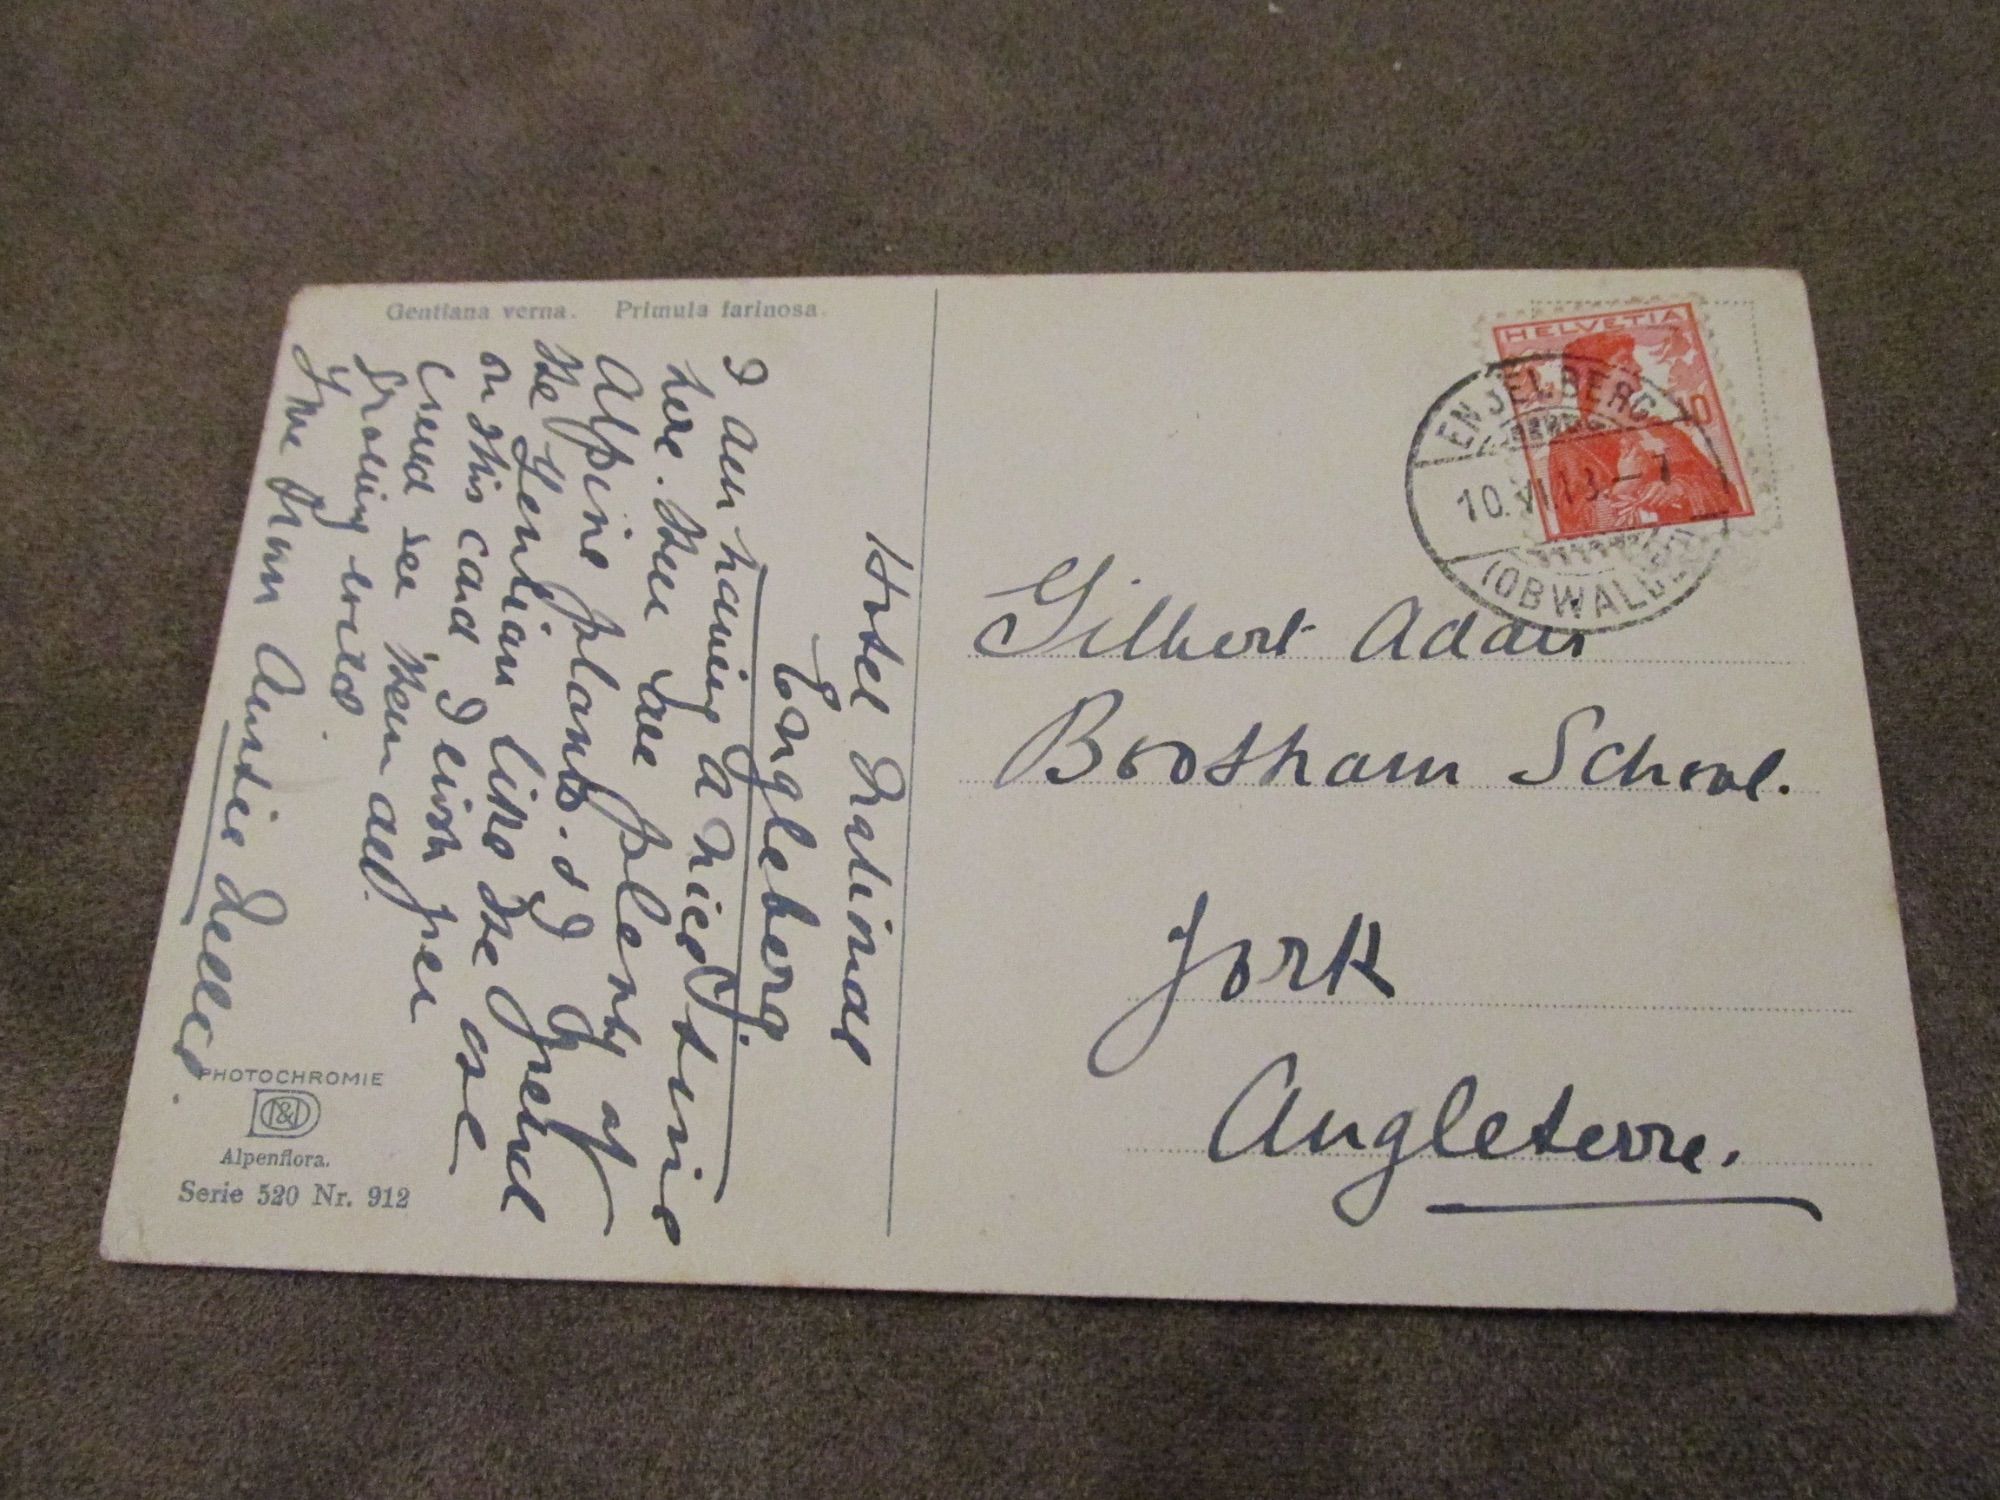 Gentiana verna. Primula farinosa.
Hotel National
Engleberg.
I am having a nice time
here. There are plenty of
Alpine plants. & I found
the Gentian like the one
on this card I wish you
could see them all
growing wild.
Love from Auntie
PHOTOCHROMIE
Alpenflora.
Serie 520 Nr. 912
HELVETIA
10
ENGELBERG
10.VI.13.-7
(OBWALDEN)
Gilbert Adair
Bootham School.
York
Angleterre.